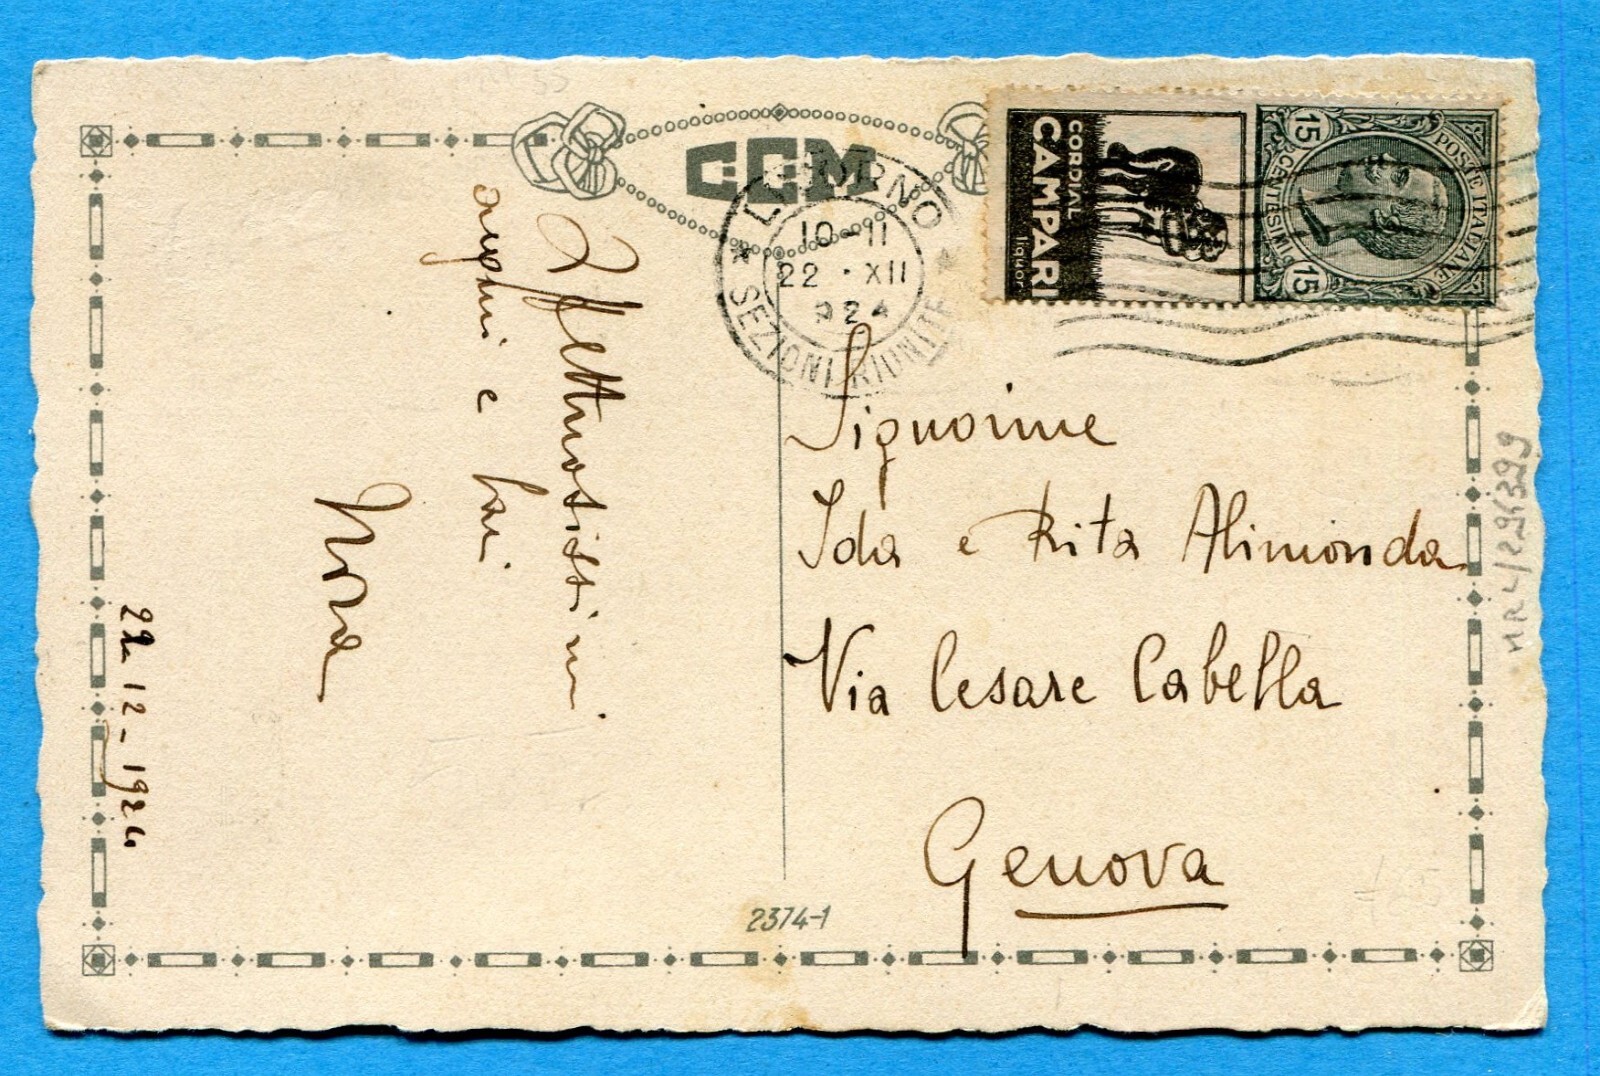 CCM
LIVORNO
10-11
22 · XII
924
SEZIONI RIUNITE
CORDIAL
CAMPARI
liquor
POSTE ITALIANE
15 CENTESIMI 15
Affettuosissimi
auguri e baci
Nora
22-12-1924
Signorine
Ida e Rita Alimonda
Via Cesare Cabella
Genova
2374-1